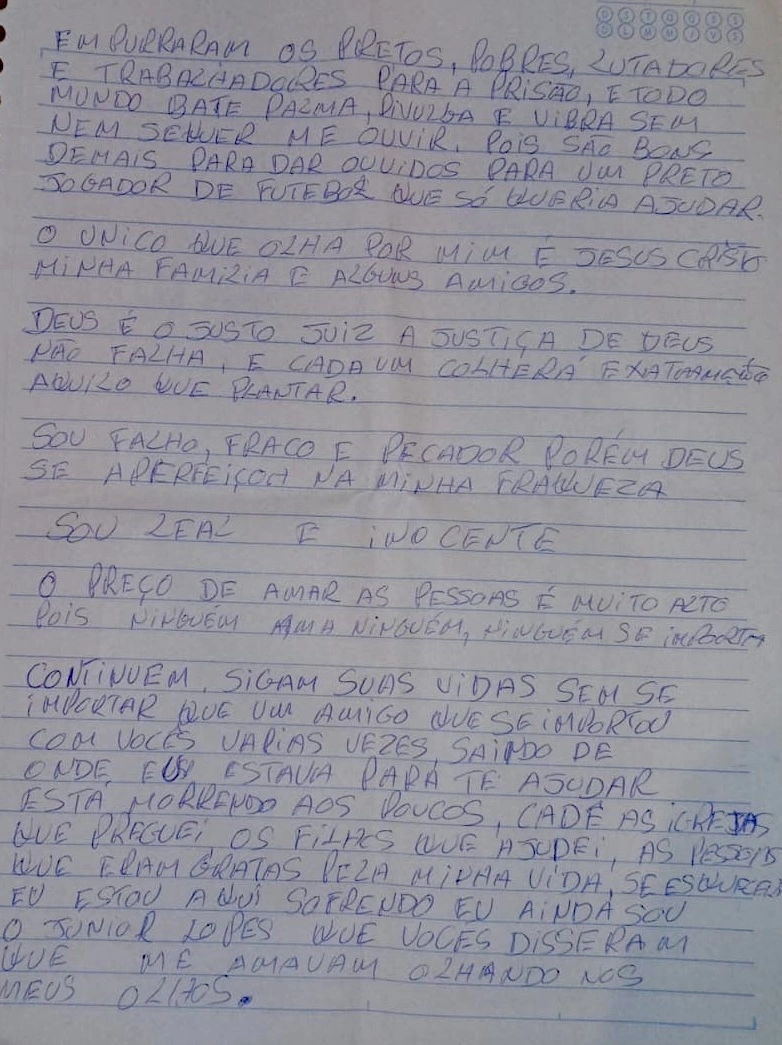 D S T Q Q S S
D L M M J V S
EMPURRARAM OS PRETOS, POBRES, LUTADORES
E TRABALHADORES PARA A PRISÃO, E TODO
MUNDO BATE PALMA, DIVULGA E VIBRA SEM
NEM SEQUER ME OUVIR. POIS SÃO BONS
DEMAIS PARA DAR OUVIDOS PARA UM PRETO
JOGADOR DE FUTEBOL QUE SÓ QUERIA AJUDAR.
O UNICO QUE OLHA POR MIM É JESUS CRISTO
MINHA FAMILIA E ALGUNS AMIGOS.
DEUS É O JUSTO JUIZ A JUSTIÇA DE DEUS
NÃO FALHA, E CADA UM COLHERÁ EXATAMENTE
AQUILO QUE PLANTAR.
SOU FALHO, FRACO E PECADOR PORÉM DEUS
SE APERFEIÇOA NA MINHA FRAQUEZA
SOU LEAL E INOCENTE
O PREÇO DE AMAR AS PESSOAS É MUITO ALTO
POIS NINGUÉM AMA NINGUÉM, NINGUÉM SE IMPORTA
CONTINUEM, SIGAM SUAS VIDAS SEM SE
IMPORTAR QUE UM AMIGO QUE SE IMPORTOU
COM VOCÊS VARIAS VEZES, SAINDO DE
ONDE EU ESTAVA PARA TE AJUDAR
ESTÁ MORRENDO AOS POUCOS, CADÊ AS IGREJAS
QUE PREGUEI, OS FILHOS QUE AJUDEI, AS PESSOAS
QUE ERAM GRATAS PELA MINHA VIDA, SE ESQUECERAM
EU ESTOU AQUI SOFRENDO EU AINDA SOU
O JUNIOR LOPES QUE VOCES DISSERAM
QUE ME AMAVAM OLHANDO NOS
MEUS OLHOS.